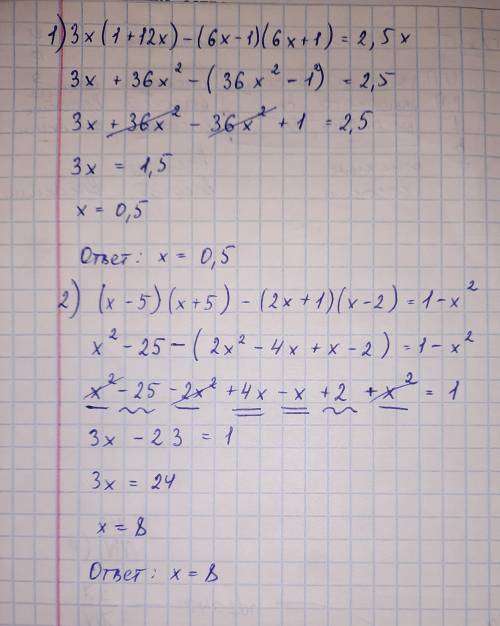 1) 3x(1+12x)-(6x-1)(6x+1)=2,5x
3x + 36x² - (36x² - 1²) = 2,5
3x + 36x² - 36x² + 1 = 2,5
3x = 1,5
x = 0,5
Ответ: x = 0,5
2) (x-5)(x+5)-(2x+1)(x-2)=1-x²
x²-25-(2x²-4x+x-2)=1-x²
x²-25-2x²+4x-x+2+x²=1
3x-23=1
3x=24
x=8
Ответ: x=8